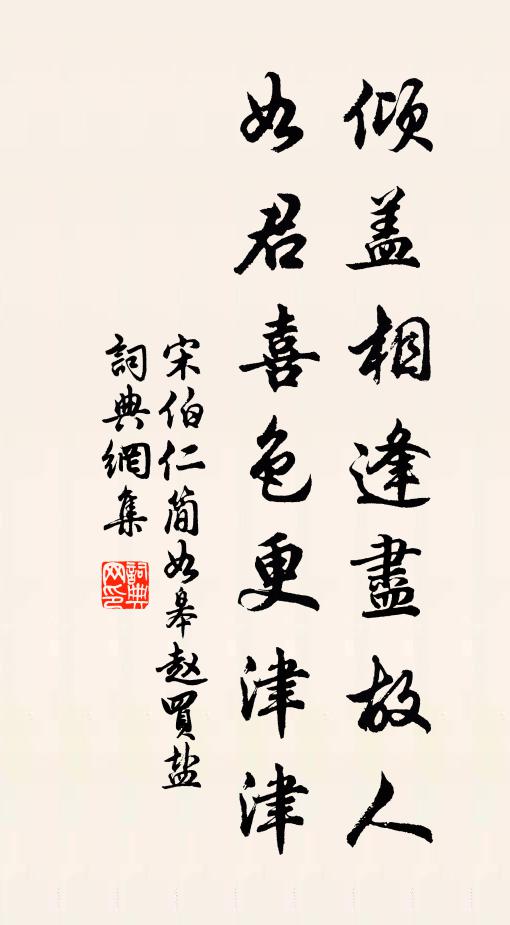 倾盖相逢盡故人
如君喜色更津津
宋伯仁简如皋赵買盐
詞典網集
詞典网印